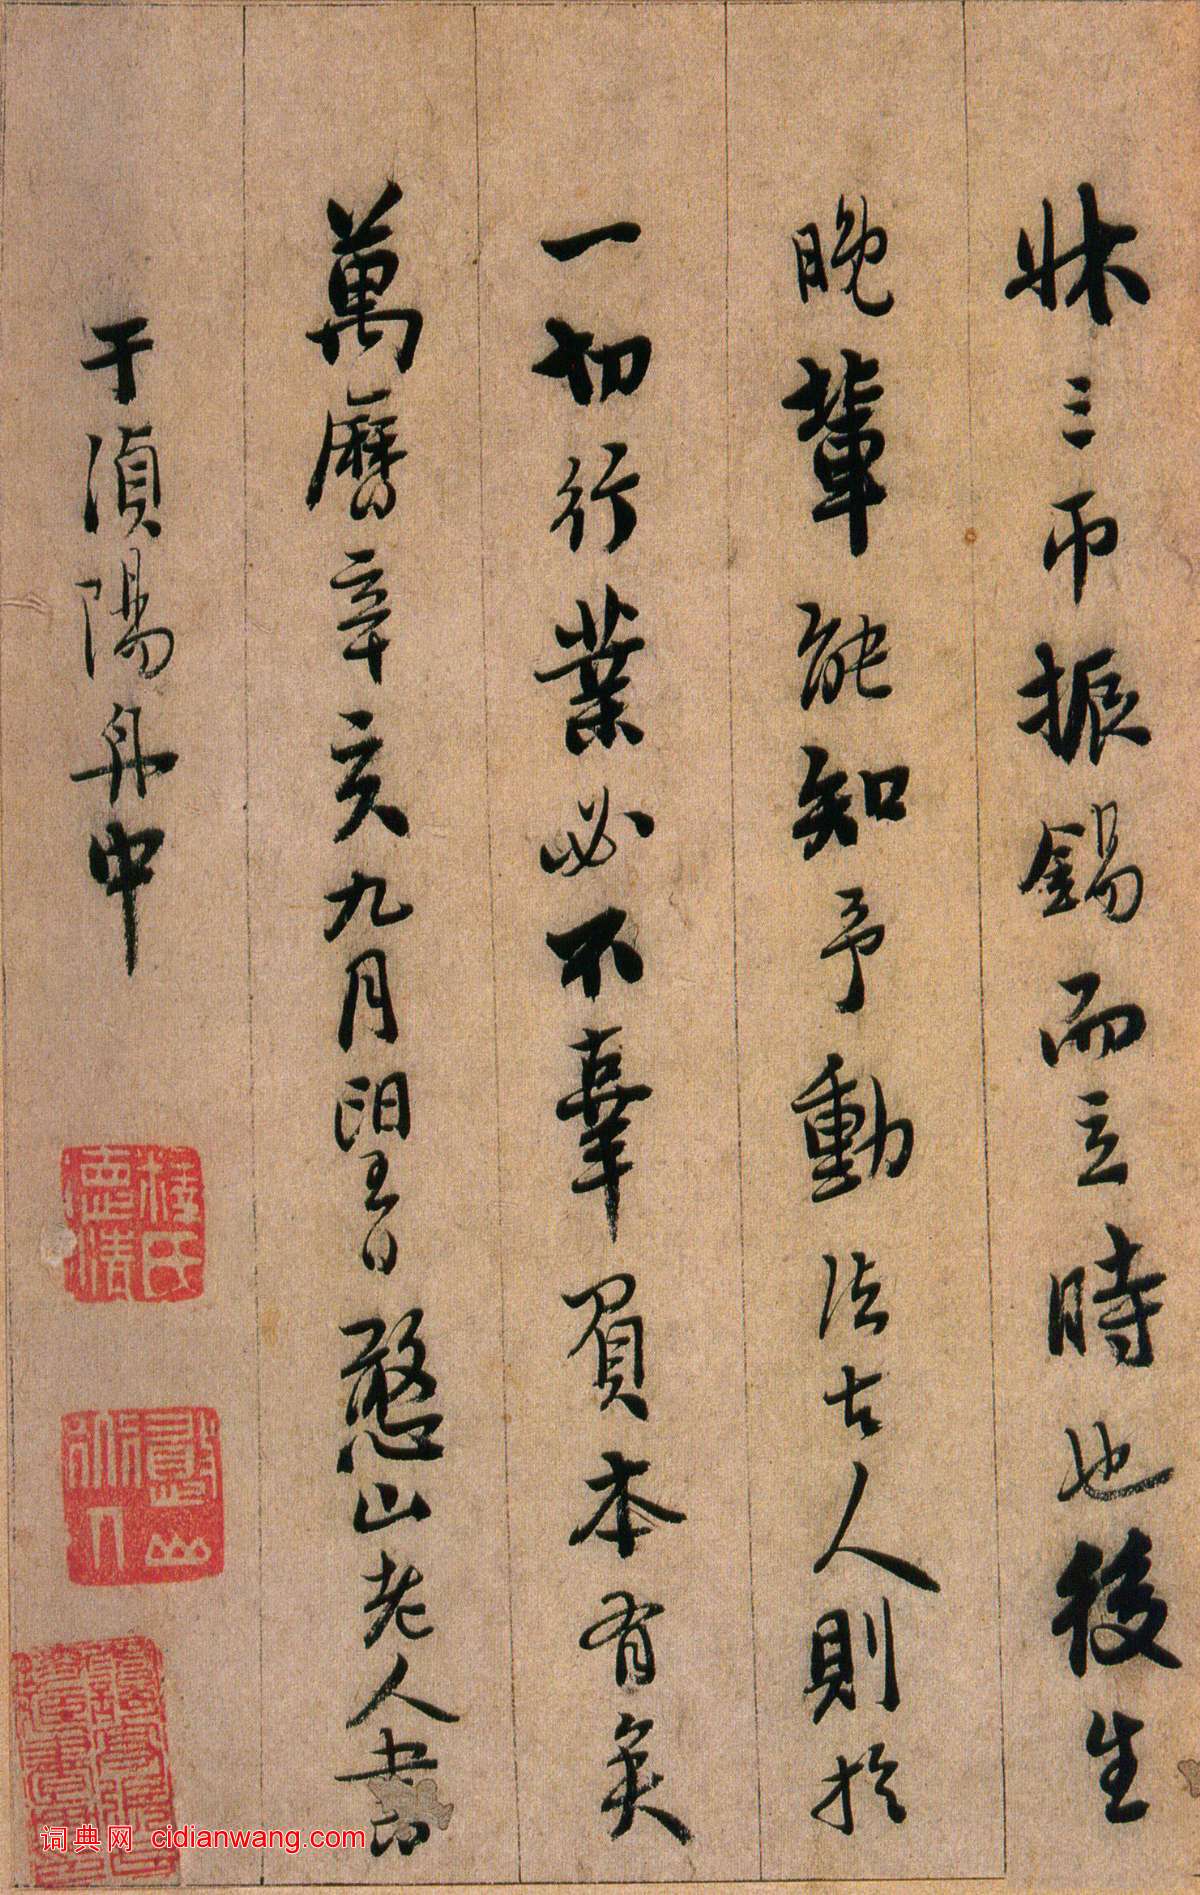 牀三帀振錫而立時也後生
晚輩能知予動法古人則於
一切行業必不辜負本有矣
萬曆辛亥九月望日憨山老人書
于湞陽舟中
桂氏德清
憨山
词典网 cidianwang.com